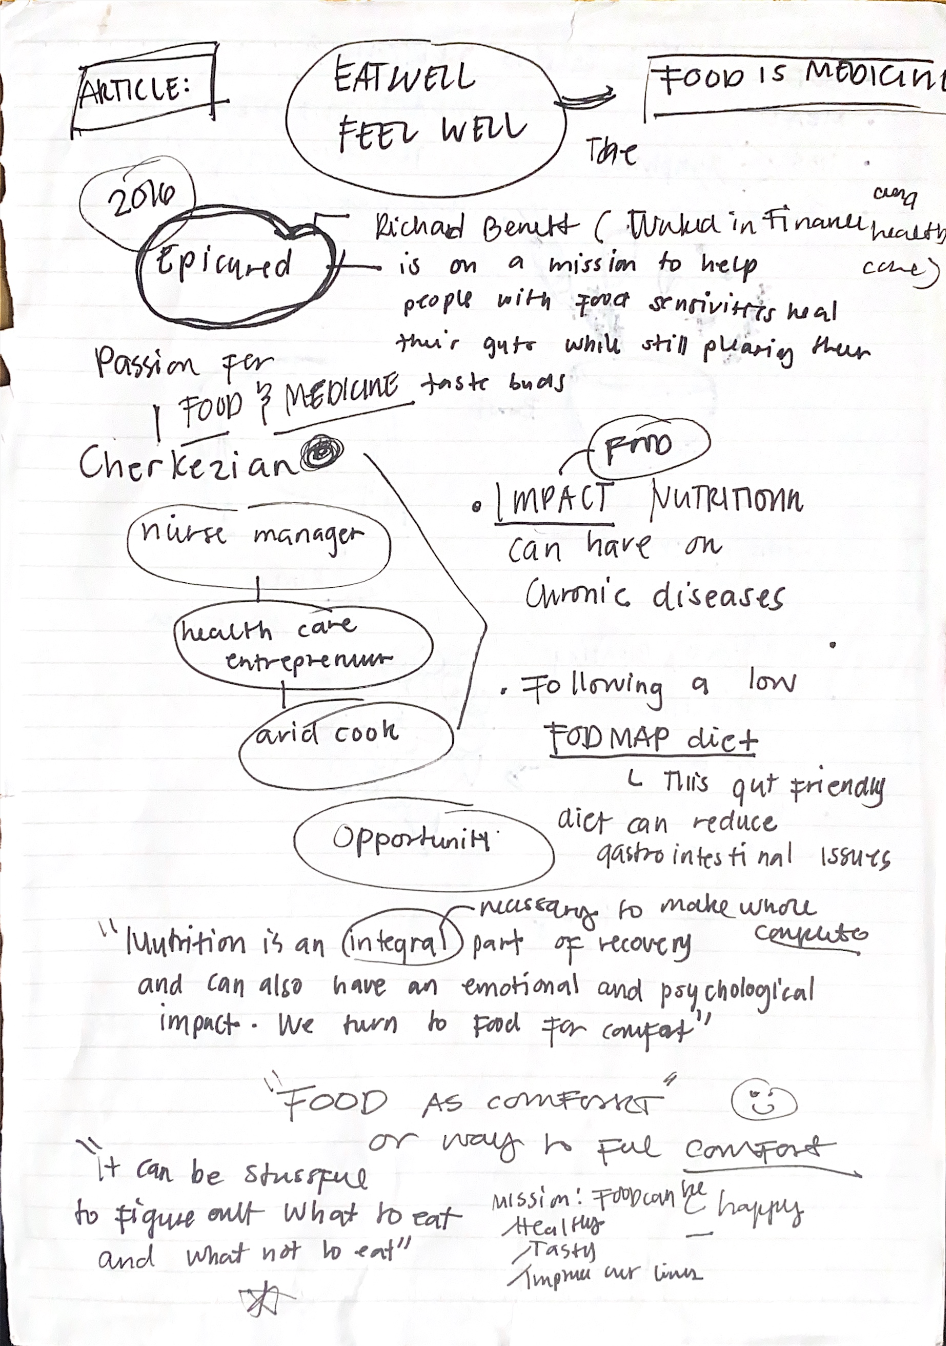 ARTICLE:
EATWELL
FEEL WELL
FOOD IS MEDICINE
The
2016
Epicured
Richard Benett ( Worked in Finance and health care)
is on a mission to help
people with Food sensivities heal
their guts while still pleasing their
taste buds
Passion for
FOOD & MEDICINE
Cherkezian
nurse manager
health care
entrepreneur
avid cook
Opportuniti
FOOD
• IMPACT NUTRITIONN
can have on
Chronic diseases
• Following a low
FODMAP diet
This gut Friendly
diet can reduce
gastrointestinal issues
necessary to make whole
complete
"Nutrition is an integral part of recovery
and can also have an emotional and psychological
impact. We turn to Food For comfort"
"FOOD AS COMFORT"
or way to Feel comfort
"It can be stressful
to figure out what to eat
and what not to eat"
Mission: Food can be happy
Healthy
Tasty
Improve our lives